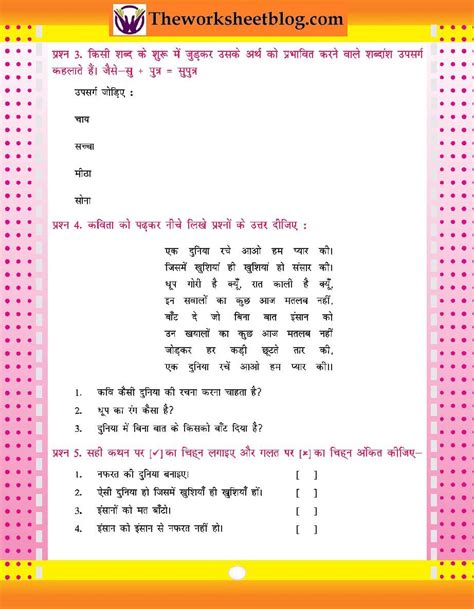 Theworksheetblog.com
प्रश्न 3. किसी शब्द के शुरू में जुड़कर उसके अर्थ को प्रभावित करने वाले शब्दांश उपसर्ग
कहलाते हैं। जैसे–सु + पुत्र = सुपुत्र
उपसर्ग जोड़िए :
चाय
सच्चा
मीठा
सोना
प्रश्न 4. कविता को पढ़कर नीचे लिखे प्रश्नों के उत्तर दीजिए :
एक दुनिया रचे आओ हम प्यार की।
जिसमें खुशियाँ ही खुशियाँ हो संसार की।
धूप गोरी है क्यूँ, रात काली है क्यूँ,
इन सवालों का कुछ आज मतलब नहीं,
बाँट दे जो बिना बात इंसान को
उन खयालों का कुछ आज मतलब नहीं
जोड़कर हर कड़ी छूटते तार की,
एक दुनिया रचें आओ हम प्यार की।।
1. कवि कैसी दुनिया की रचना करना चाहता है?
2. धूप का रंग कैसा है?
3. दुनिया में बिना बात के किसको बाँट दिया है?
प्रश्न 5. सही कथन पर [✓] का चिह्न लगाइए और गलत पर [×] का चिह्न अंकित कीजिए–
1. नफरत की दुनिया बनाइए। [ ]
2. ऐसी दुनिया हो जिसमें खुशियाँ ही खुशियाँ हों। [ ]
3. इंसानों को मत बाँटो। [ ]
4. इंसान को इंसान से नफरत नहीं हो। [ ]